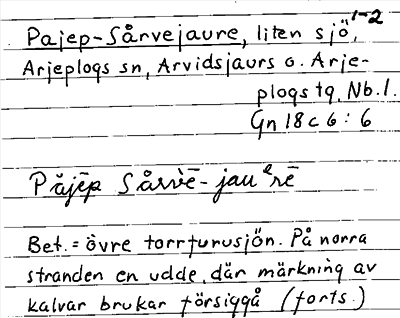 Pajep-Sårvejaure, liten sjö, 1-2
Arjeplogs sn, Arvidsjaurs o. Arje-
plogs tg, Nb. l.
Gn 18 c 6 : 6
Păjēp Sårvē-jauᵉrē
Bet. = övre torrfurusjön. På norra
stranden en udde, där märkning av
kalvar brukar försiggå (forts.)